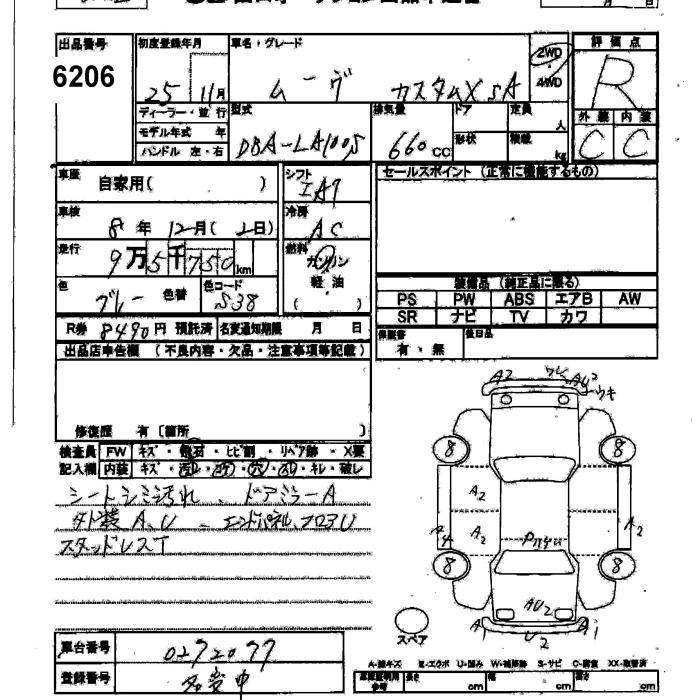 出品番号
6206
初度登録年月
25 11月
車名・グレード
ムーヴ カスタムX SA
2WD
4WD
評価点
R
外装 内装
C C
ディーラー・並行
モデル年式 年
ハンドル 左・右
型式
DBA-LA100S
排気量
660cc
ドア
形状
定員
人
積載
kg
車歴
自家用( )
シフト
IAT
セールスポイント(正常に機能するもの)
車検
8年 12月( 2日)
冷房
AC
走行
9万5千750km
燃料
ガソリン
軽油
( )
色
グレー
色替
色コード
S38
装備品(純正品に限る)
PS PW ABS エアB AW
SR ナビ TV カワ
R券 8490円 預託済
名変通知期限 月 日
保証書
有・無
後日品
出品店申告欄(不良内容・欠品・注意事項等記載)
修復歴 有〔箇所 〕
検査員
記入欄
FW キズ・飛石・ヒビ割・リペア跡・X要
内装 キズ・汚れ・コゲ・穴・スレ・キレ・破レ
シートシミ汚れ、ドアミラーA
外装A、U エンドパネル、フロアU
スタッドレスT
A2
AU2
ウキ
8 8
A2
A2
A4
A2
8 8
AU2
A1
U2
A1
スペア
車台番号
0272077
登録番号
名変中
A-線キズ E-エクボ U-凹み W-補修跡 S-サビ C-腐食 XX-取替済
参考
長さ cm
幅 cm
高さ cm